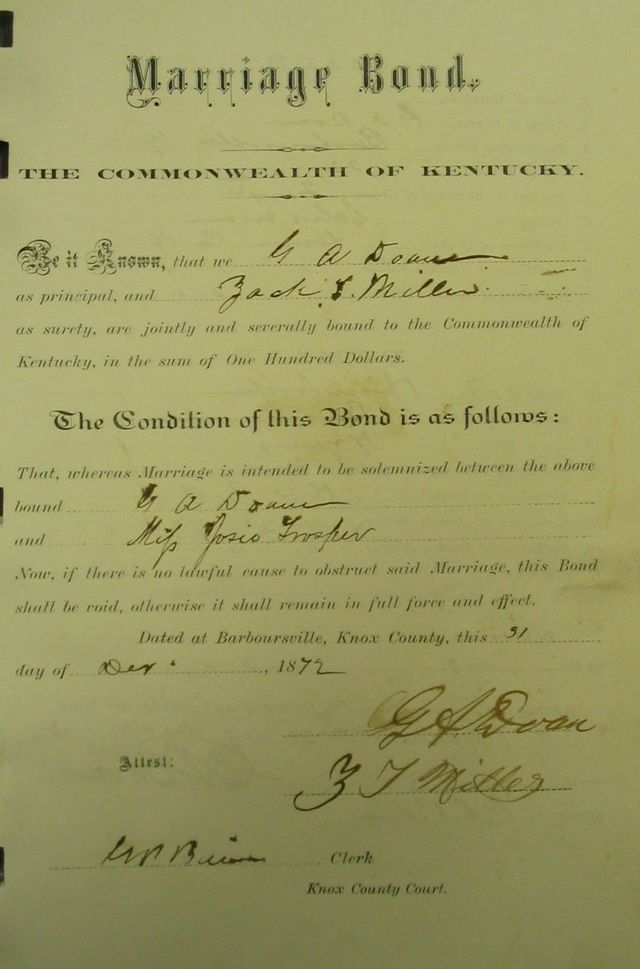 Marriage Bond.
THE COMMONWEALTH OF KENTUCKY.
Be it Known, that we G A Doane
as principal, and Zack T. Miller
as surety, are jointly and severally bound to the Commonwealth of
Kentucky, in the sum of One Hundred Dollars.
The Condition of this Bond is as follows:
That, whereas Marriage is intended to be solemnized between the above
bound G A Doane
and Miss Josie Trosper
Now, if there is no lawful cause to obstruct said Marriage, this Bond
shall be void, otherwise it shall remain in full force and effect.
Dated at Barboursville, Knox County, this 31
day of Dec , 1872
G A Doan
Attest:
Z T Miller
Clerk
Knox County Court.